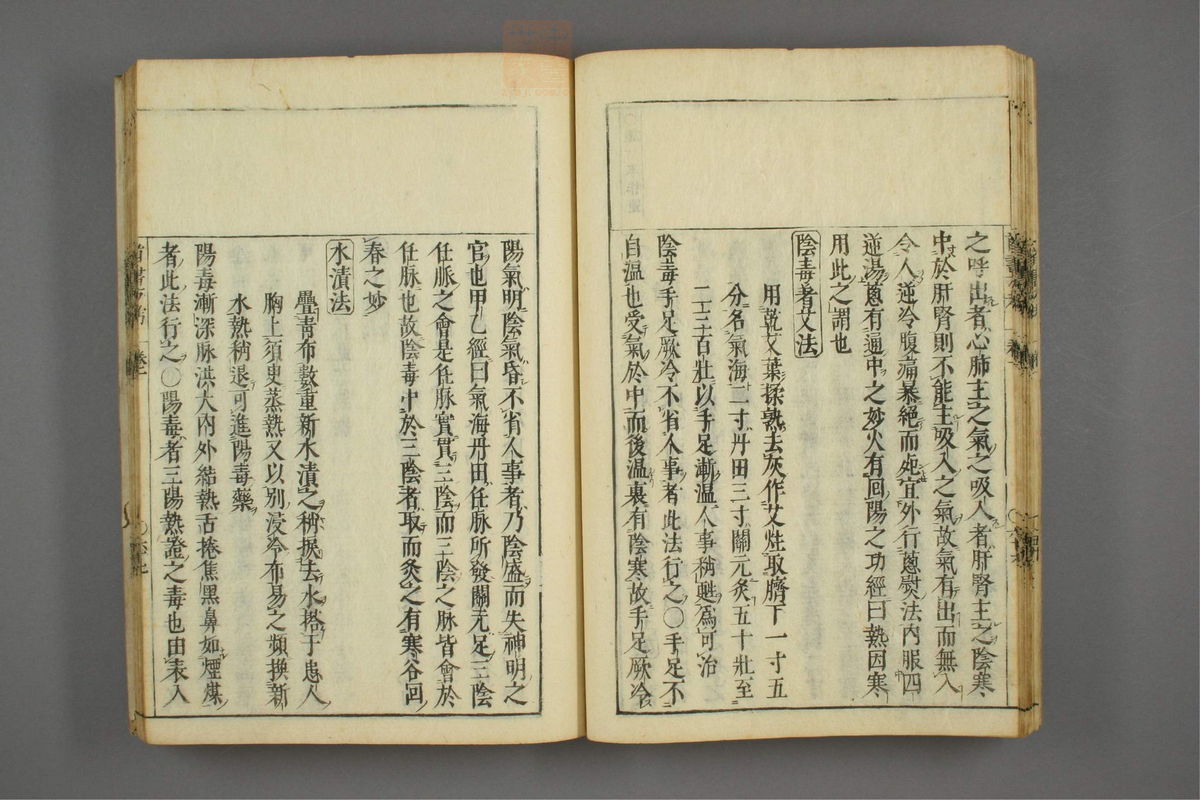 之呼出者心肺主之氣之吸入者肝腎主之陰寒
中於肝腎則不能主吸入之氣故氣有出而無入
令人逆冷腹痛暴絶而死宜外行蔥熨法内服四
逆湯蔥有通中之妙火有回陽之功經曰熱因寒
用此之謂也
陰毒者艾法
用乾艾葉揉熟去灰作艾炷取臍下一寸五
分名氣海二寸丹田三寸關元灸五十壯至
二三百壯以手足漸温人事稍甦爲可治
陰毒手足厥冷不省人事者此法行之〇手足不
自温也受氣於中而後温裏有陰寒故手足厥冷
陽氣明陰氣昏不省人事者乃陰盛而失神明之
官也甲乙經曰氣海丹田任脉所發關元足三陰
任脈之會是任脈實貫三陰而三陰之脉皆會於
任脉也故陰毒中於三陰者取而灸之有寒谷回
春之妙
水漬法
疊青布數重新水漬之稍捩去水搭于患人
胸上須臾蒸熱又以別浸冷布易之頻換新
水熱稍退可進陽毒藥
陽毒漸深脉洪大内外結熱舌捲焦黑鼻如煙煤
者此法行之〇陽毒者三陽熱證之毒也由表入